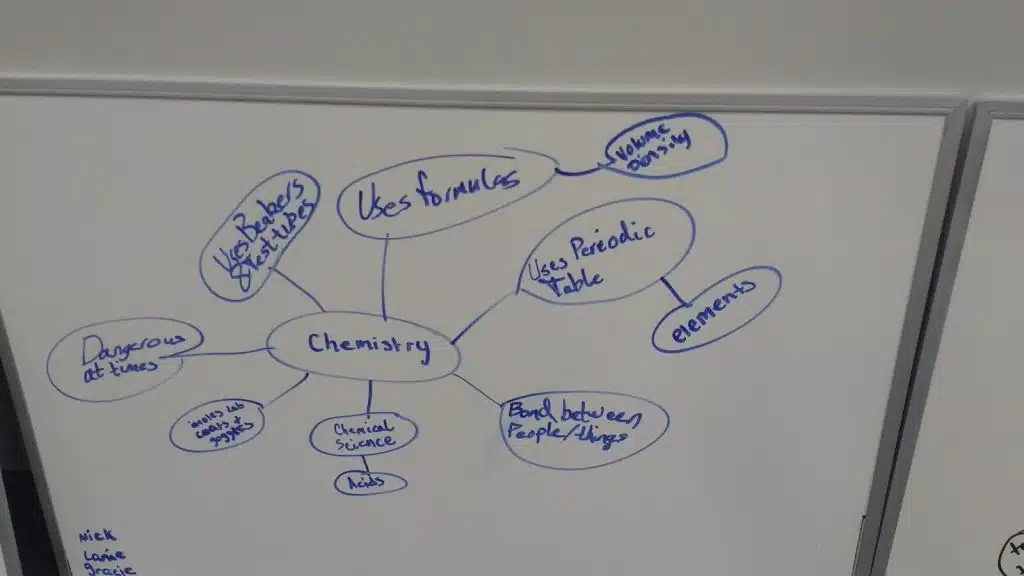 Volume
Density
Uses formulas
Uses Beakers
& Test tubes
Uses Periodic
Table
elements
Chemistry
Dangerous
at times
lab
coats +
goggles
Chemical
Science
Acids
Bond between
People/things
Nick
Lanie
gracie